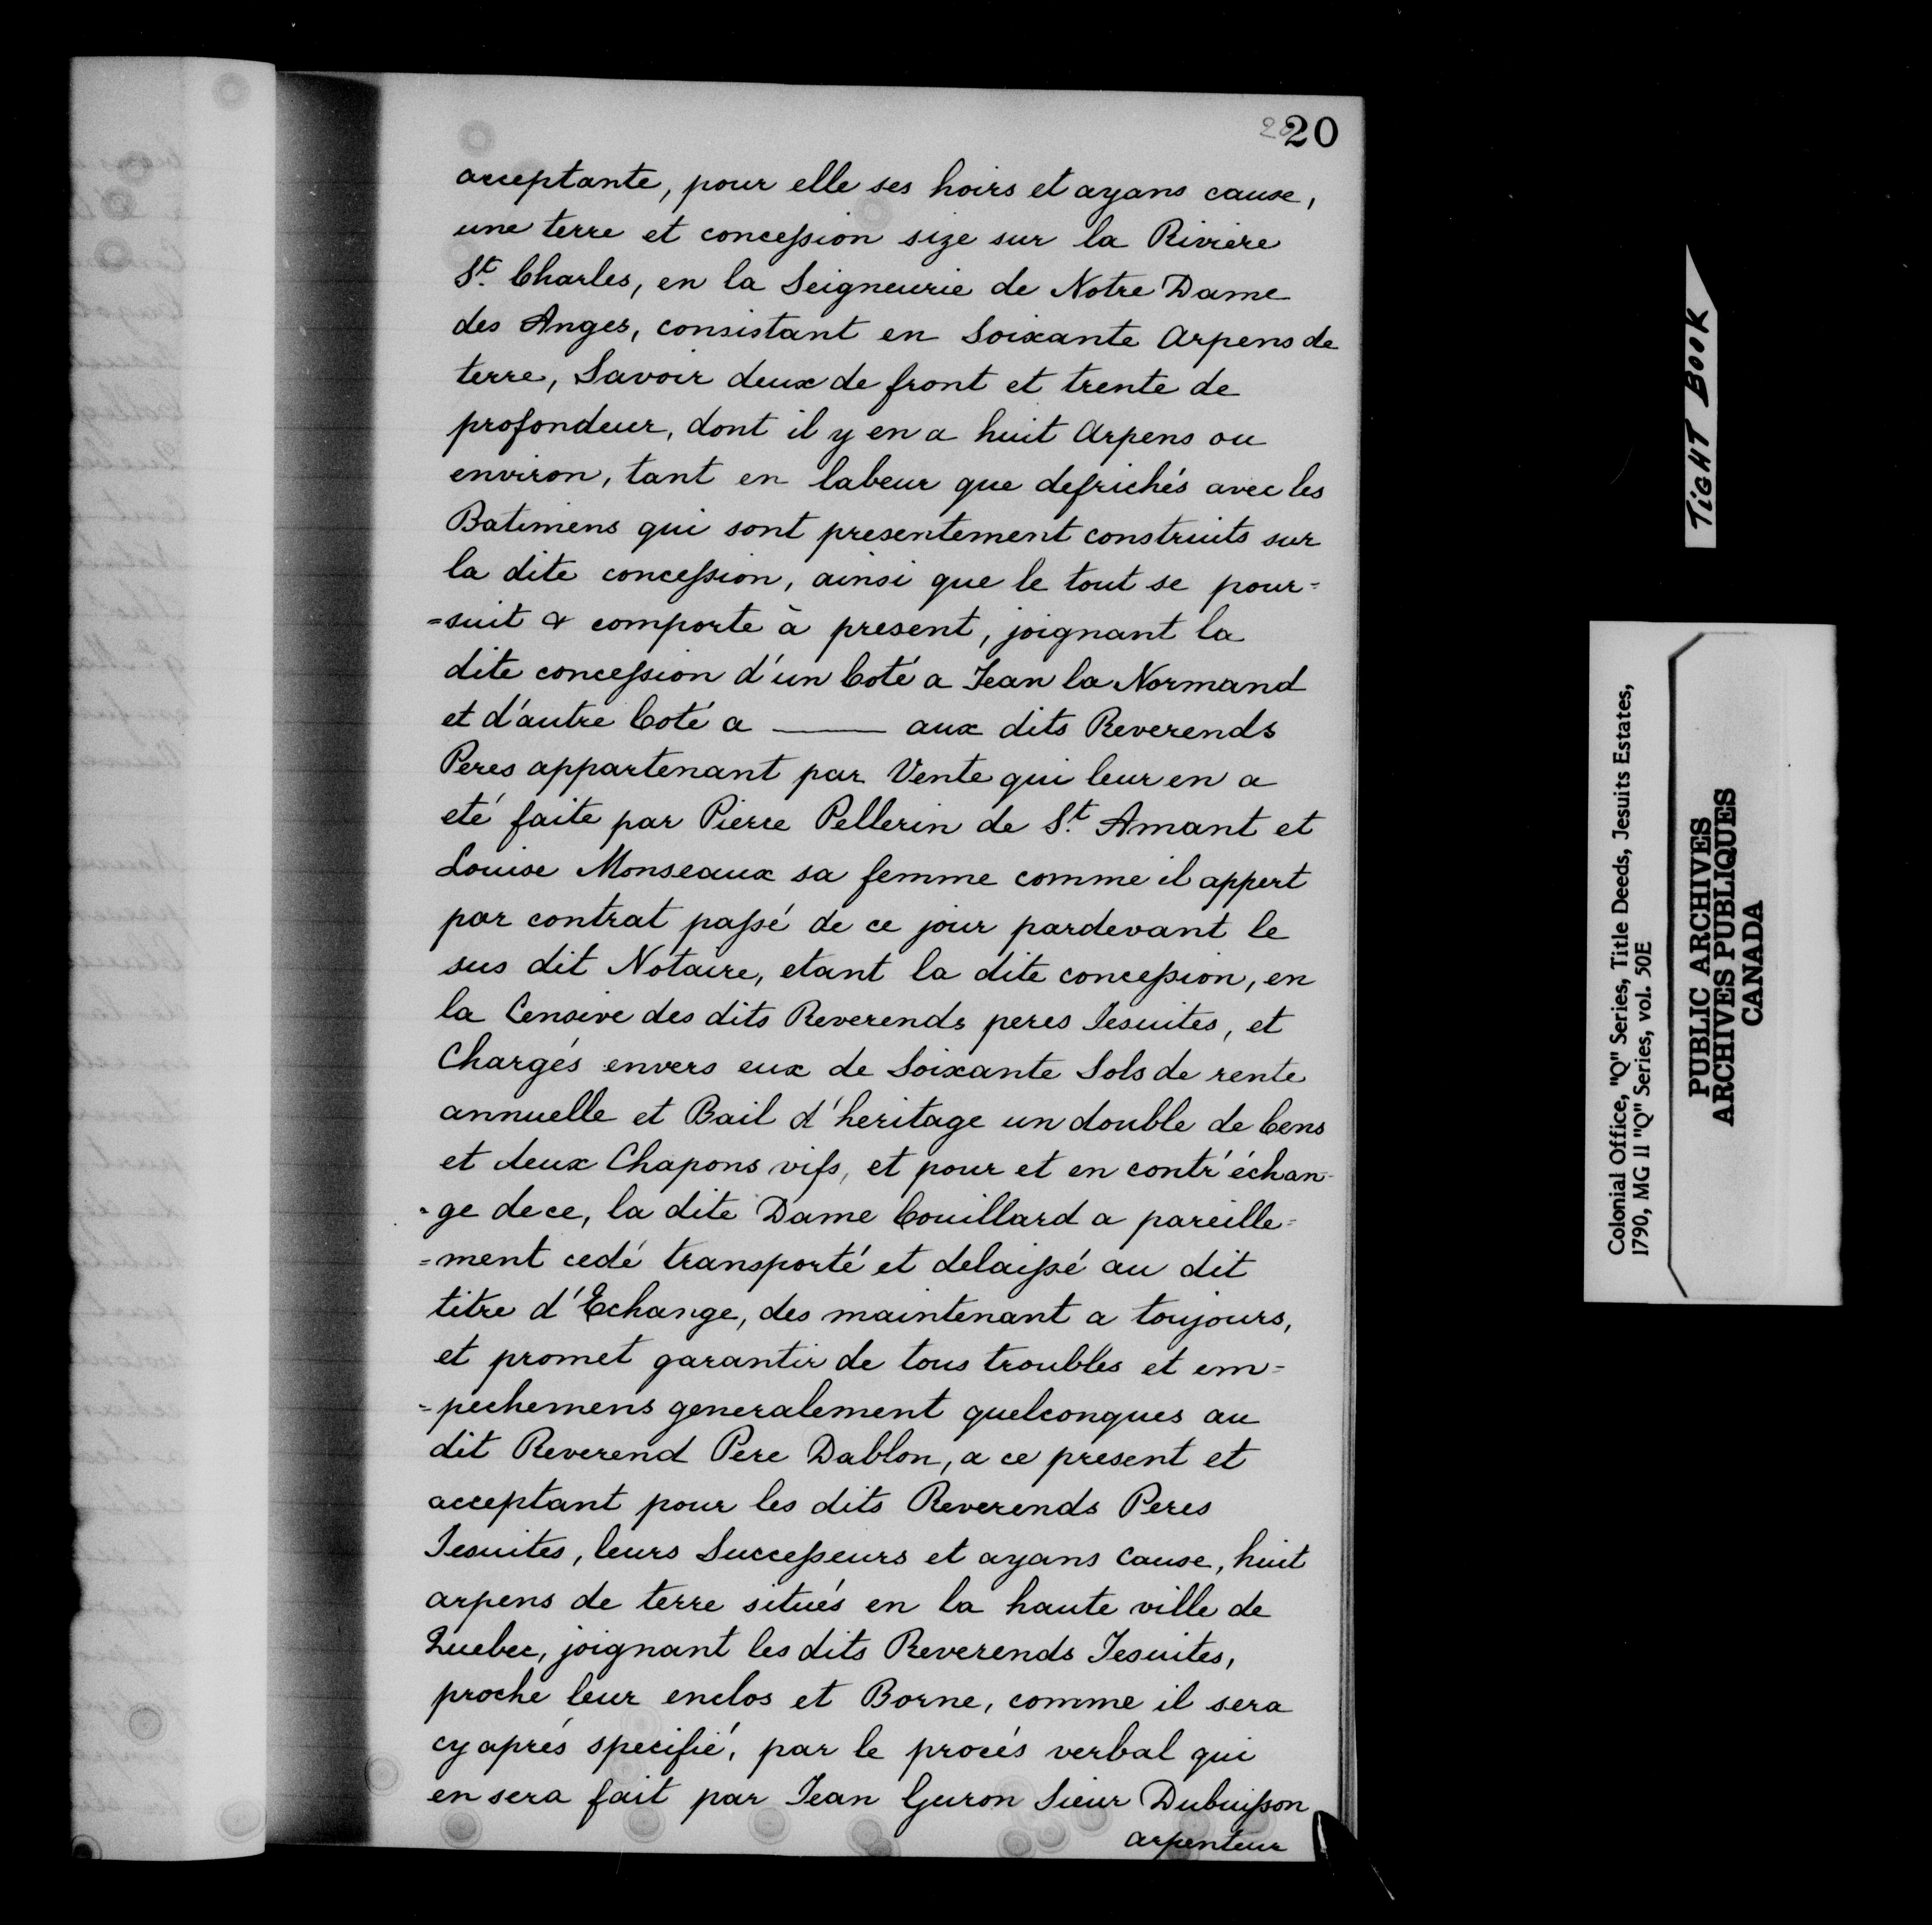 20 20
acceptante, pour elle ses hoirs et ayans cause,
une terre et concession size sur la Riviere
St. Charles, en la Seigneurie de Notre Dame
des Anges, consistant en Soixante Arpens de
terre, Savoir deux de front et trente de
profondeur, dont il y en a huit Arpens ou
environ, tant en labeur que defrichés avec les
Batimens qui sont presentement construits sur
la dite concession, ainsi que le tout se pour=
=suit & comporte à present, joignant la
dite concession d'un Coté a Jean la Normand
et d'autre Coté a ——— aux dits Reverends
Peres appartenant par Vente qui leur en a
eté faite par Pierre Pellerin de St. Amant et
Louise Monseaux sa femme comme il appert
par contrat passé de ce jour pardevant le
sus dit Notaire, etant la dite concession, en
la Censive des dits Reverends peres Jesuites, et
Chargés envers eux de Soixante Sols de rente
annuelle et Bail d'heritage un double de Cens
et deux Chapons vifs, et pour et en contr'échan=
=ge de ce, la dite Dame Couillard a pareille=
=ment cedé transporté et delaissé au dit
titre d'Echange, des maintenant a toujours,
et promet garantir de tous troubles et em=
=pechemens generalement quelconques au
dit Reverend Pere Dablon, a ce present et
acceptant pour les dits Reverends Peres
Jesuites, leurs Successeurs et ayans Cause, huit
arpens de terre situés en la haute ville de
Quebec, joignant les dits Reverends Jesuites,
proche leur enclos et Borne, comme il sera
cy aprés specifié, par le procés verbal qui
en sera fait par Jean Guron Sieur Dubuisson
arpenteur
TIGHT BOOK
Colonial Office, "Q" Series, Title Deeds, Jesuits Estates,
1790, MG 11 "Q" Series, vol. 50E
PUBLIC ARCHIVES
ARCHIVES PUBLIQUES
CANADA